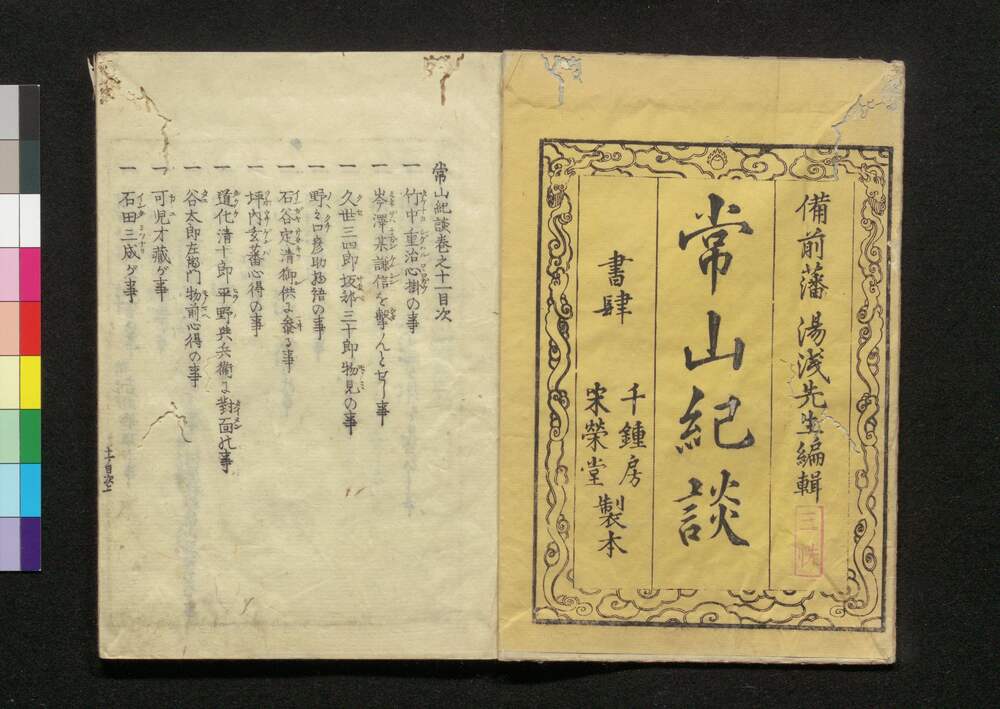 備前藩 湯浅先生編輯
常山紀談
書肆
千鍾房
宋榮堂
製本
常山紀談巻之十一目次
一 竹中重治心樹の事
一 岑澤某謙信を撃んとせし事
一 久世三四郎坂部三十郎物見の事
一 野々口彦助物語の事
一 石谷定清御供に参る事
一 坪内玄蕃心得の事
一 道化清十郎平野与兵衛に對面の事
一 谷太郎左衛門物前心得の事
一 可児才藏ガ事
一 石田三成ガ事
十一目次一